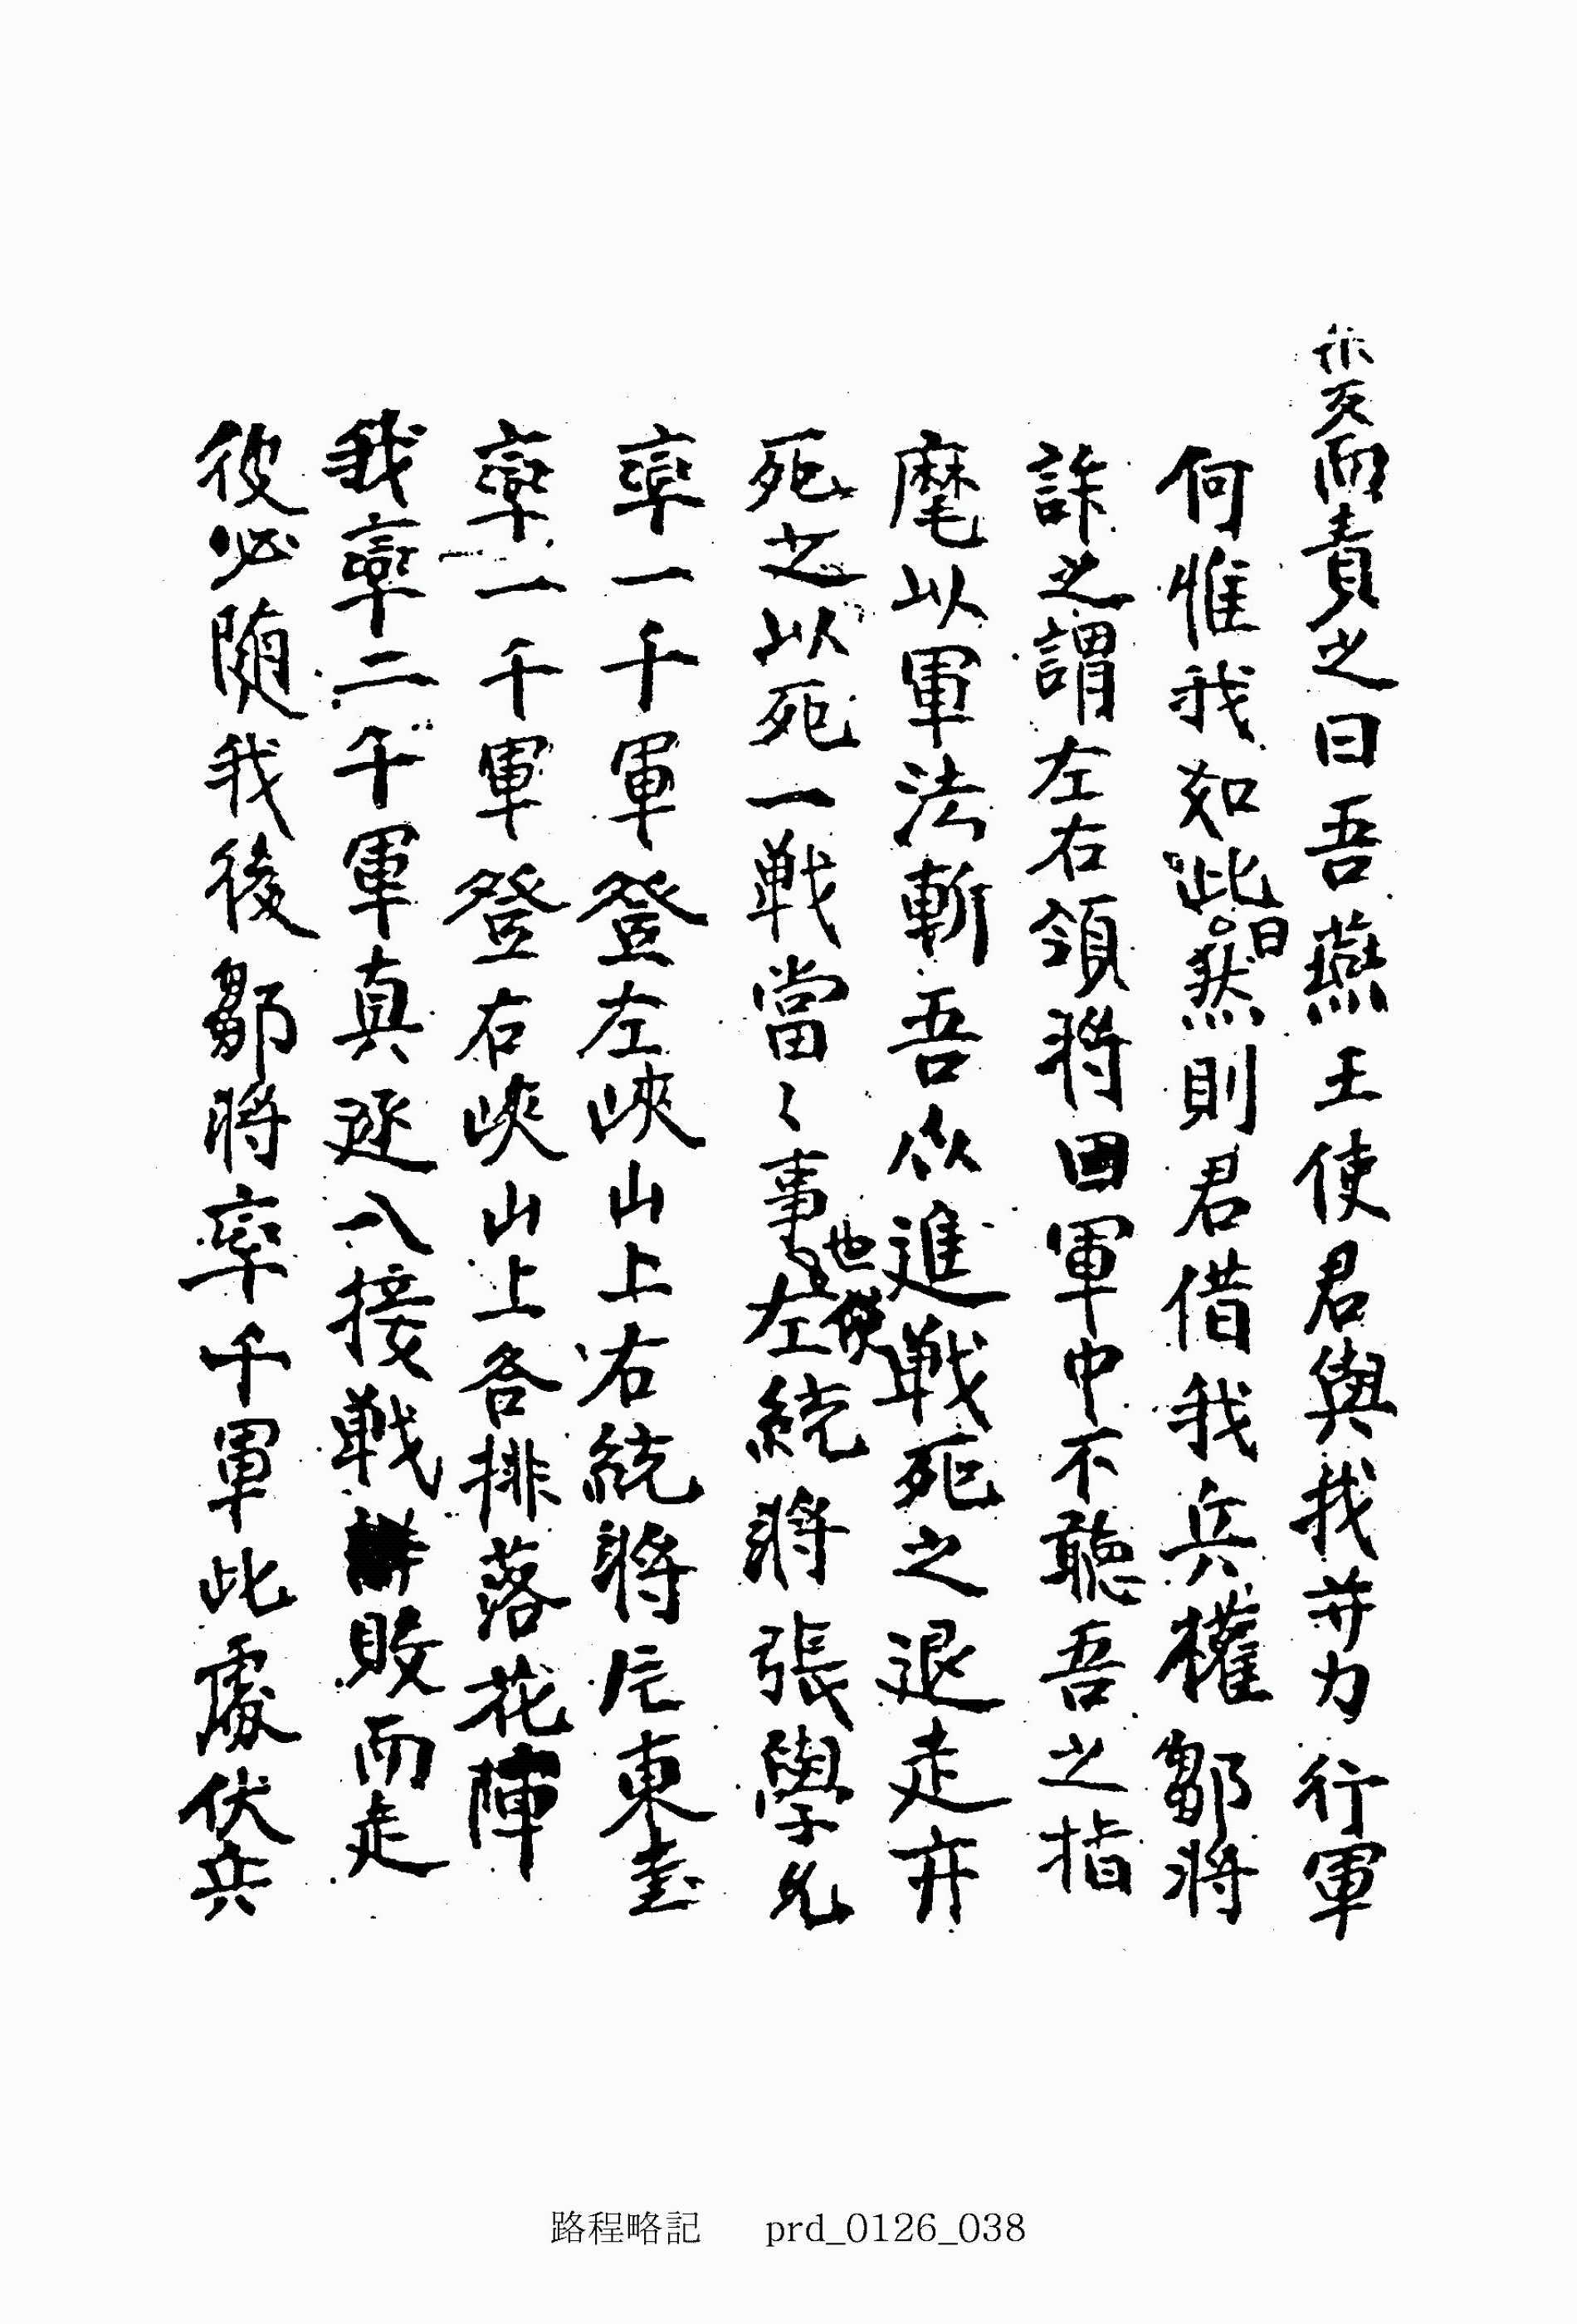 而責之曰吾燕王使君與我并力行軍
何惟我如此曰然則君借我兵權鄒將
許之謂左右領將曰軍中不聽吾之指
麾以軍法斬吾众進戰死之退走亦
死之以死一戰當〻事也左統將張學允
率一千軍登左峽山上右統將片東
率一千軍登右峽山上各排落花陣
我率二千軍真逐入接戰 敗而走
彼必随我後鄒將率千軍此處伏兵
路程略記 prd_0126_038